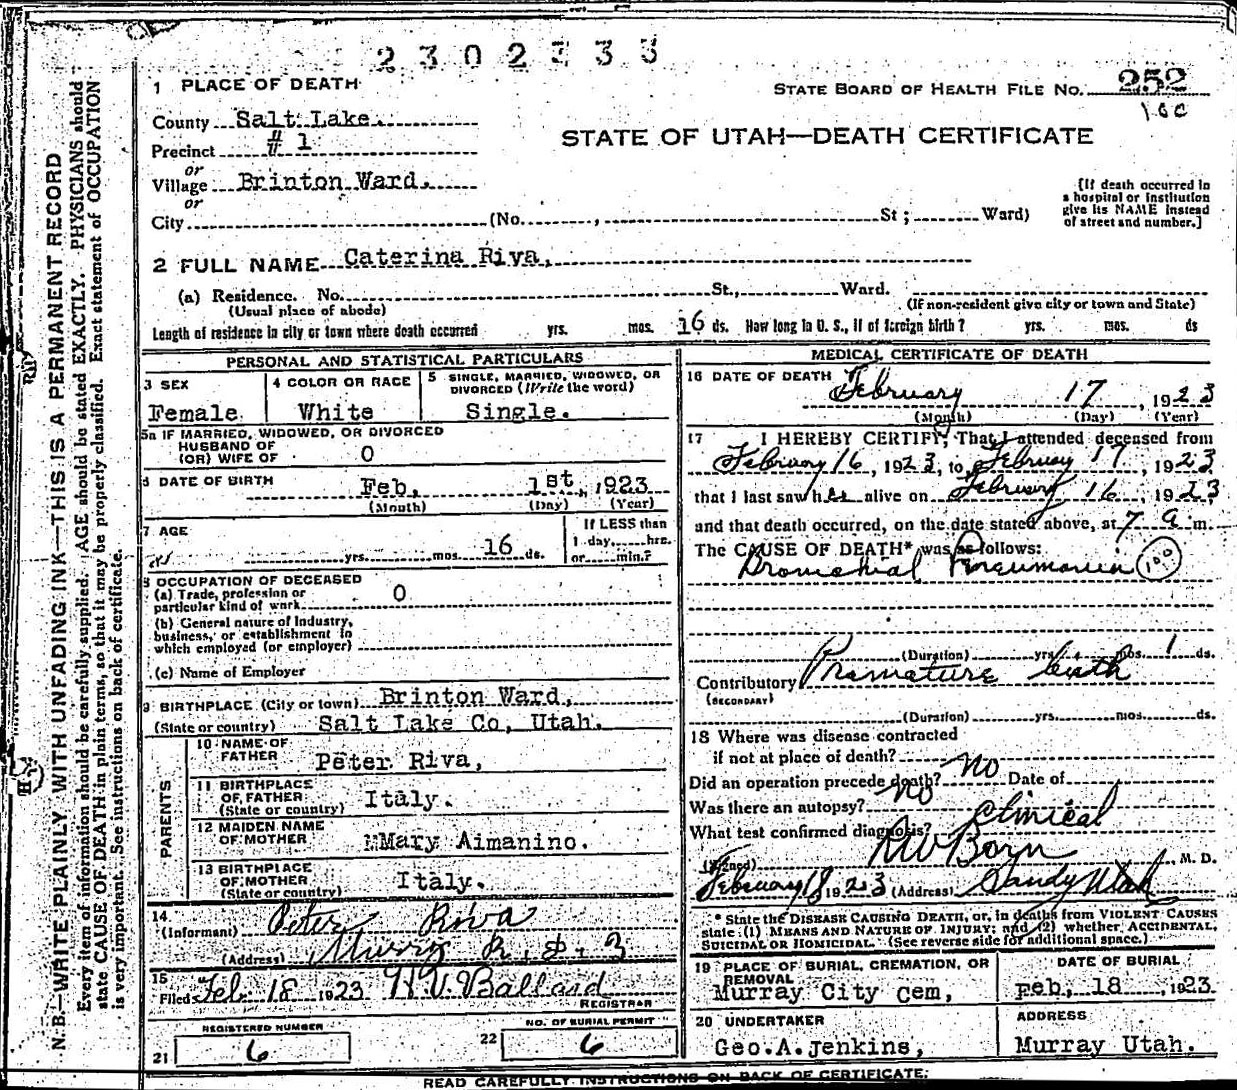 2302333
1 PLACE OF DEATH
STATE BOARD OF HEALTH FILE NO. 252
100
County Salt Lake.
STATE OF UTAH—DEATH CERTIFICATE
Precinct # 1
or
Village Brinton Ward.
or
City (No. , St; Ward)
[If death occurred in
a hospital or institution
give its NAME instead
of street and number.]
2 FULL NAME Caterina Riva,
(a) Residence. No. St., Ward.
(Usual place of abode) (If non-resident give city or town and State)
Length of residence in city or town where death occurred yrs. mos. 16 ds. How long in U. S., if of foreign birth? yrs. mos. ds
PERSONAL AND STATISTICAL PARTICULARS
3 SEX
Female
4 COLOR OR RACE
White
5 SINGLE, MARRIED, WIDOWED, OR
DIVORCED (Write the word)
Single.
5a IF MARRIED, WIDOWED, OR DIVORCED
HUSBAND OF
(OR) WIFE OF 0
6 DATE OF BIRTH Feb, 1st, 1923
(Month) (Day) (Year)
7 AGE
yrs. mos. 16 ds.
If LESS than
1 day, hrs.
or min.?
8 OCCUPATION OF DECEASED
(a) Trade, profession or
particular kind of work 0
(b) General nature of Industry,
business, or establishment in
which employed (or employer)
(c) Name of Employer
9 BIRTHPLACE (City or town) Brinton Ward,
(State or country) Salt Lake Co, Utah.
PARENTS
10 NAME OF
FATHER Peter Riva,
11 BIRTHPLACE
OF FATHER
(State or country) Italy.
12 MAIDEN NAME
OF MOTHER Mary Aimanino.
13 BIRTHPLACE
OF MOTHER
(State or country) Italy.
14
(Informant) Peter Riva
(Address) Murry R. 3
15
Filed Feb 18 1923 H V Ballard
REGISTRAR
REGISTERED NUMBER
21 6
NO. OF BURIAL PERMIT
22 6
MEDICAL CERTIFICATE OF DEATH
16 DATE OF DEATH February 17, 1923
(Month) (Day) (Year)
17 I HEREBY CERTIFY, That I attended deceased from
February 16, 1923, to February 17, 1923
that I last saw her alive on February 16, 1923
and that death occurred, on the date stated above, at 7 a m.
The CAUSE OF DEATH* was as follows:
Bronchial Pneumonia 100
(Duration) yrs. mos. 1 ds.
Contributory Premature birth
(SECONDARY)
(Duration) yrs. mos. ds.
18 Where was disease contracted
if not at place of death?
Did an operation precede death? No Date of
Was there an autopsy? No
What test confirmed diagnosis? Clinical
(Signed) R W Born M. D.
February 18 1923 (Address) Sandy Utah
* State the DISEASE CAUSING DEATH, or, in deaths from VIOLENT CAUSES
state (1) MEANS AND NATURE OF INJURY; and (2) whether ACCIDENTAL,
SUICIDAL OR HOMICIDAL. (See reverse side for additional space.)
19 PLACE OF BURIAL, CREMATION, OR
REMOVAL
Murray City Cem,
DATE OF BURIAL
Feb, 18, 1923
20 UNDERTAKER
Geo. A. Jenkins,
ADDRESS
Murray Utah.
READ CAREFULLY INSTRUCTIONS ON BACK OF CERTIFICATE.
N. B.—WRITE PLAINLY WITH UNFADING INK—THIS IS A PERMANENT RECORD
Every item of information should be carefully supplied. AGE should be stated EXACTLY. PHYSICIANS should
state CAUSE OF DEATH in plain terms, so that it may be properly classified. Exact statement of OCCUPATION
is very important. See instructions on back of certificate.